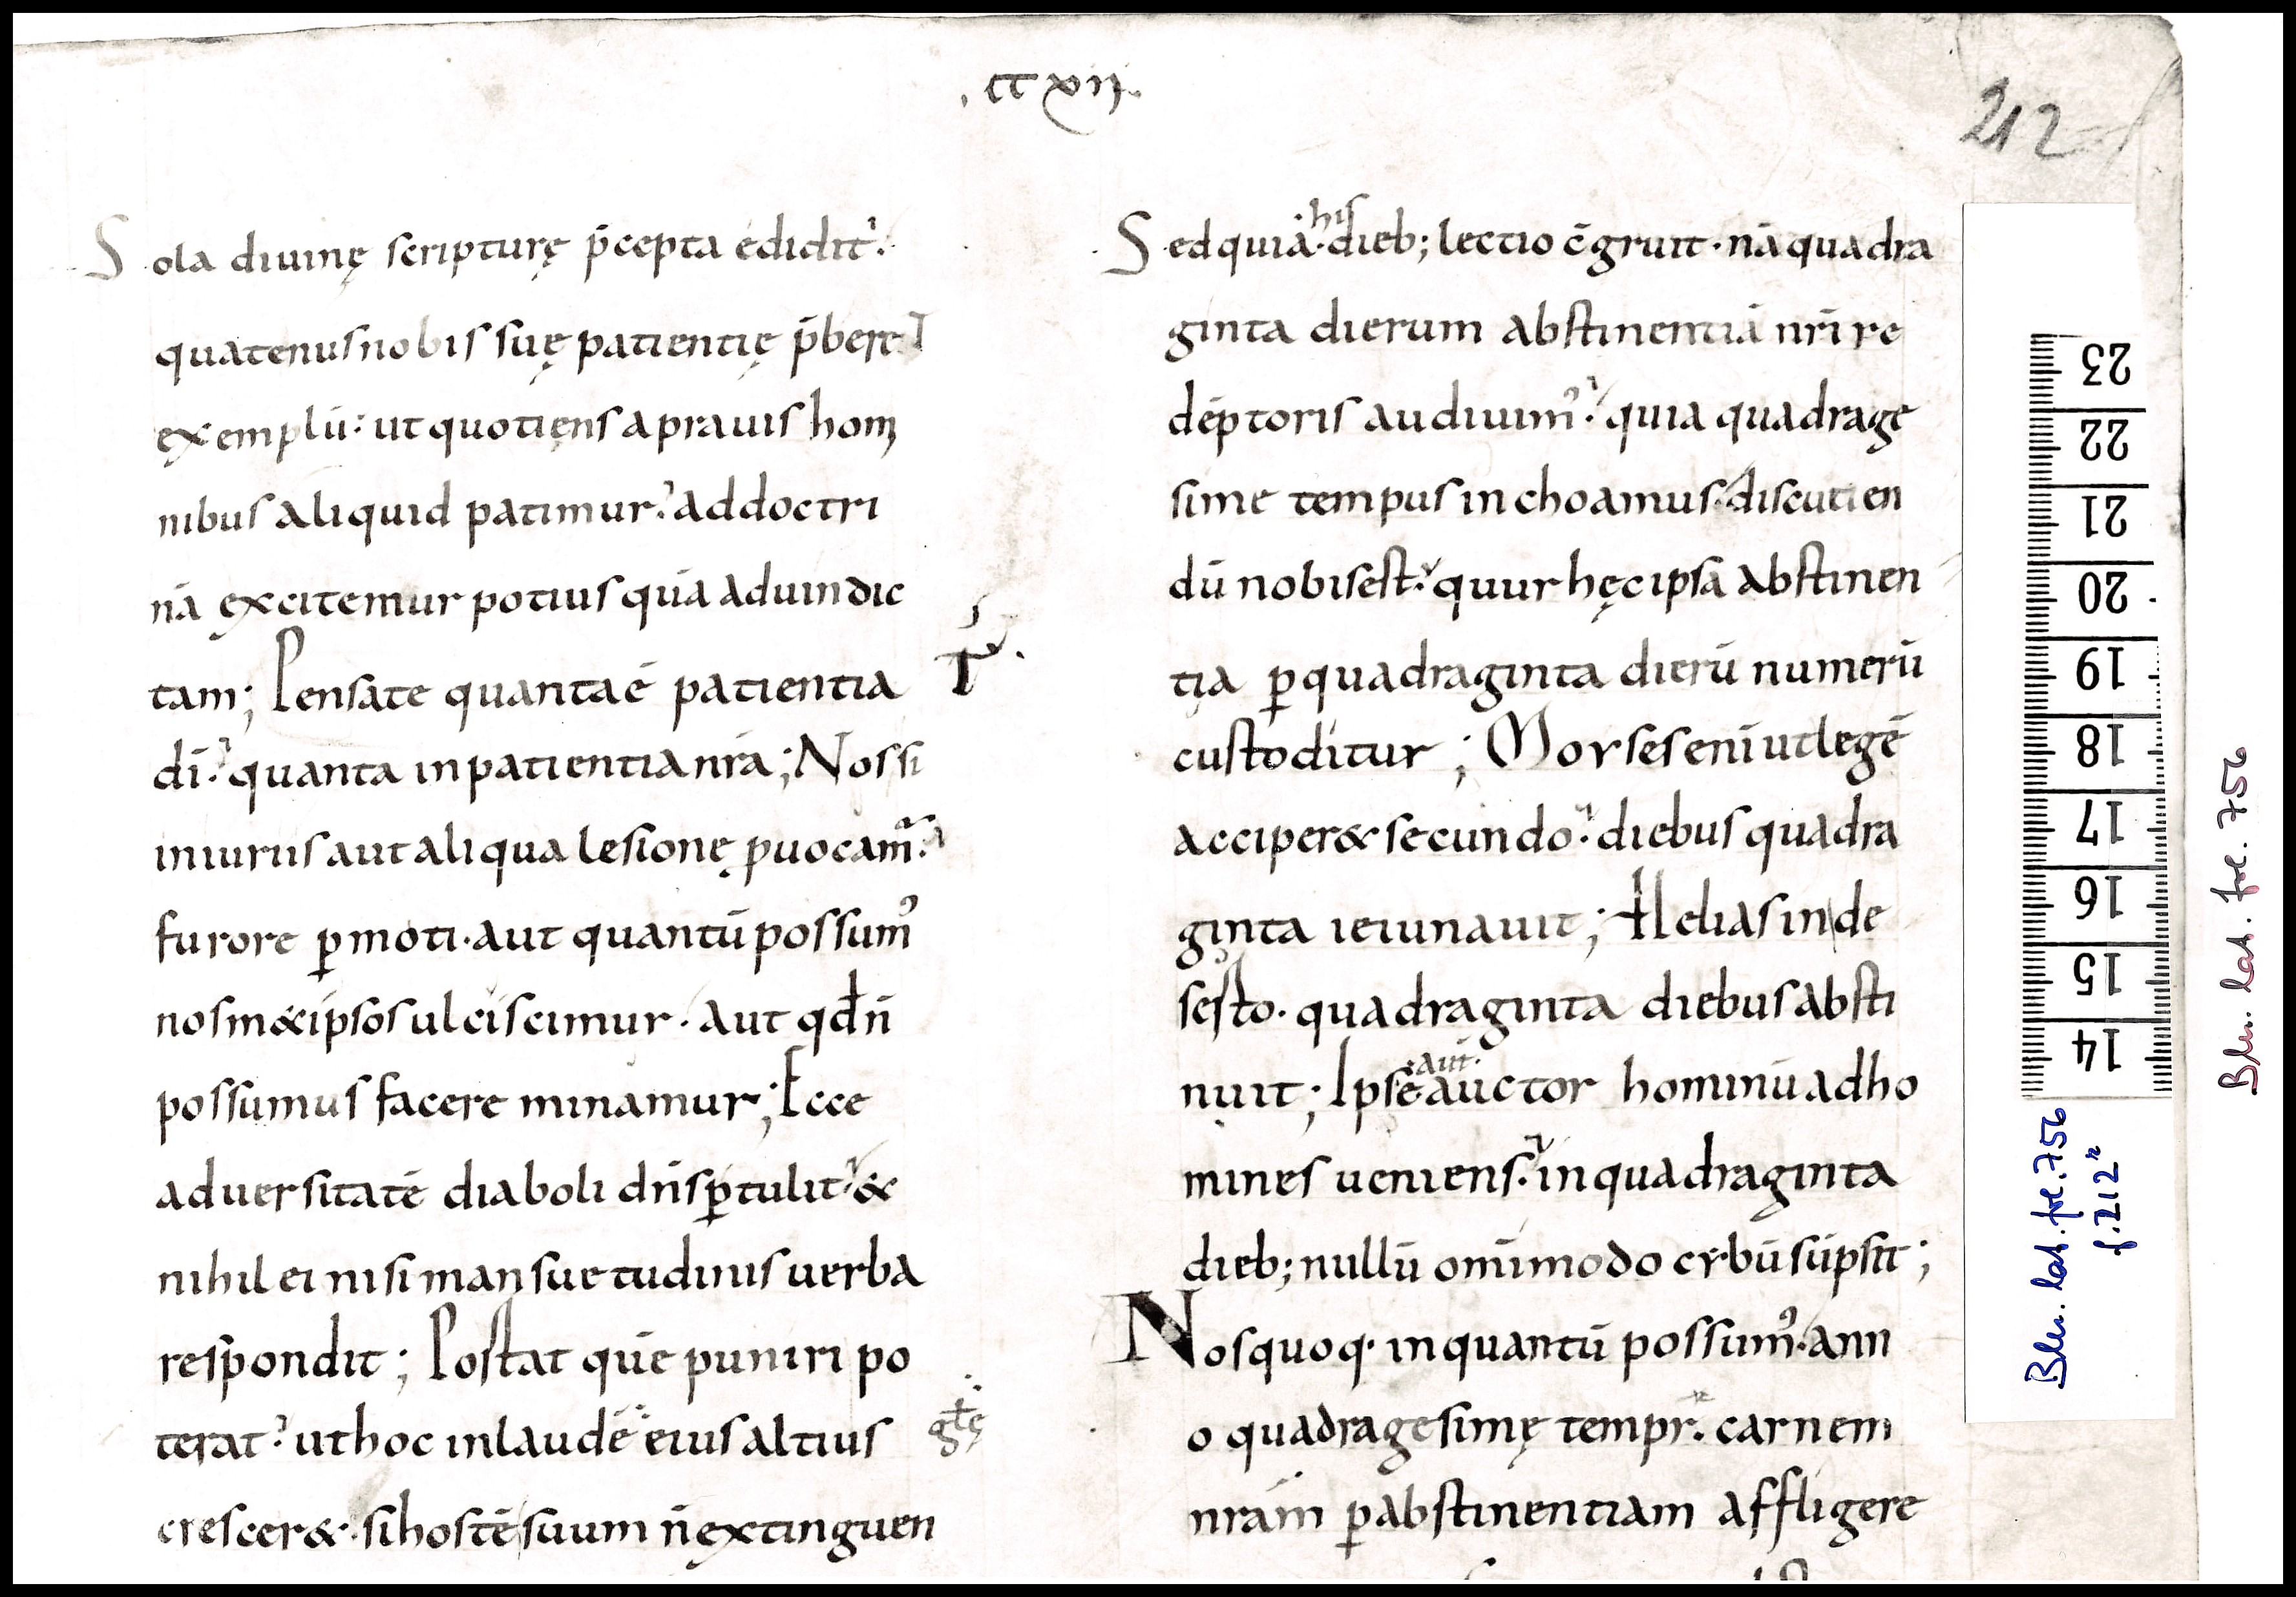 .ccxii.
212
Sola diuinę scripturę p̄cepta edidit.
quatenus nobis suę patientię p̄beret
exemplū. ut quotiens a prauis homi
nibus aliquid patimur. ad doctri
nā excitemur potius quā ad uindic
tam; Pensate quanta ē patientia
dī. quanta inpatientia nr̄a; Nos si
iniuriis aut aliqua lesionę ꝓuocam᷒.
furore ꝑmoti. aut quantū possumꝰ
nosm&ipsos ulciscimur. aut qđ n̄
possumus facere minamur; Ecce
aduersitatē diaboli dn̄s ꝑtulit. &
nihil ei nisi mansuetudinis uerba
respondit; Portat quē puniri po
terat. ut hoc in laudē eius altius
crescer&. si hostē suum n̄ extinguen
Sed quia his dieb; lectio c̄gruit. nā quadra
ginta dierum abstinentiā nr̄i re
dēptoris audiuimꝰ. quia quadrage
sime tempus inchoamus. discutien
dū nobis est. quur hęc ipsa abstinen
tia ꝑ quadraginta dierū numerū
custoditur; Moyses enī ut legē
acciper& secundo. diebus quadra
ginta ieiunauit; Helias in de
serto. quadraginta diebus absti
nuit; Ipse aut̄ auctor hominū ad ho
mines ueniens. in quadraginta
dieb; nullū omīmodo cybū sūpsit;
Nos quoq. inquantū possumꝰ. ann
o quadragesimę tempr̄. carnem
nrām ꝑ abstinentiam affligere
23
22
21
20
19
18
17
16
15
14
Bln. lat. fol. 756
f. 212r
Bln. lat. fol. 756